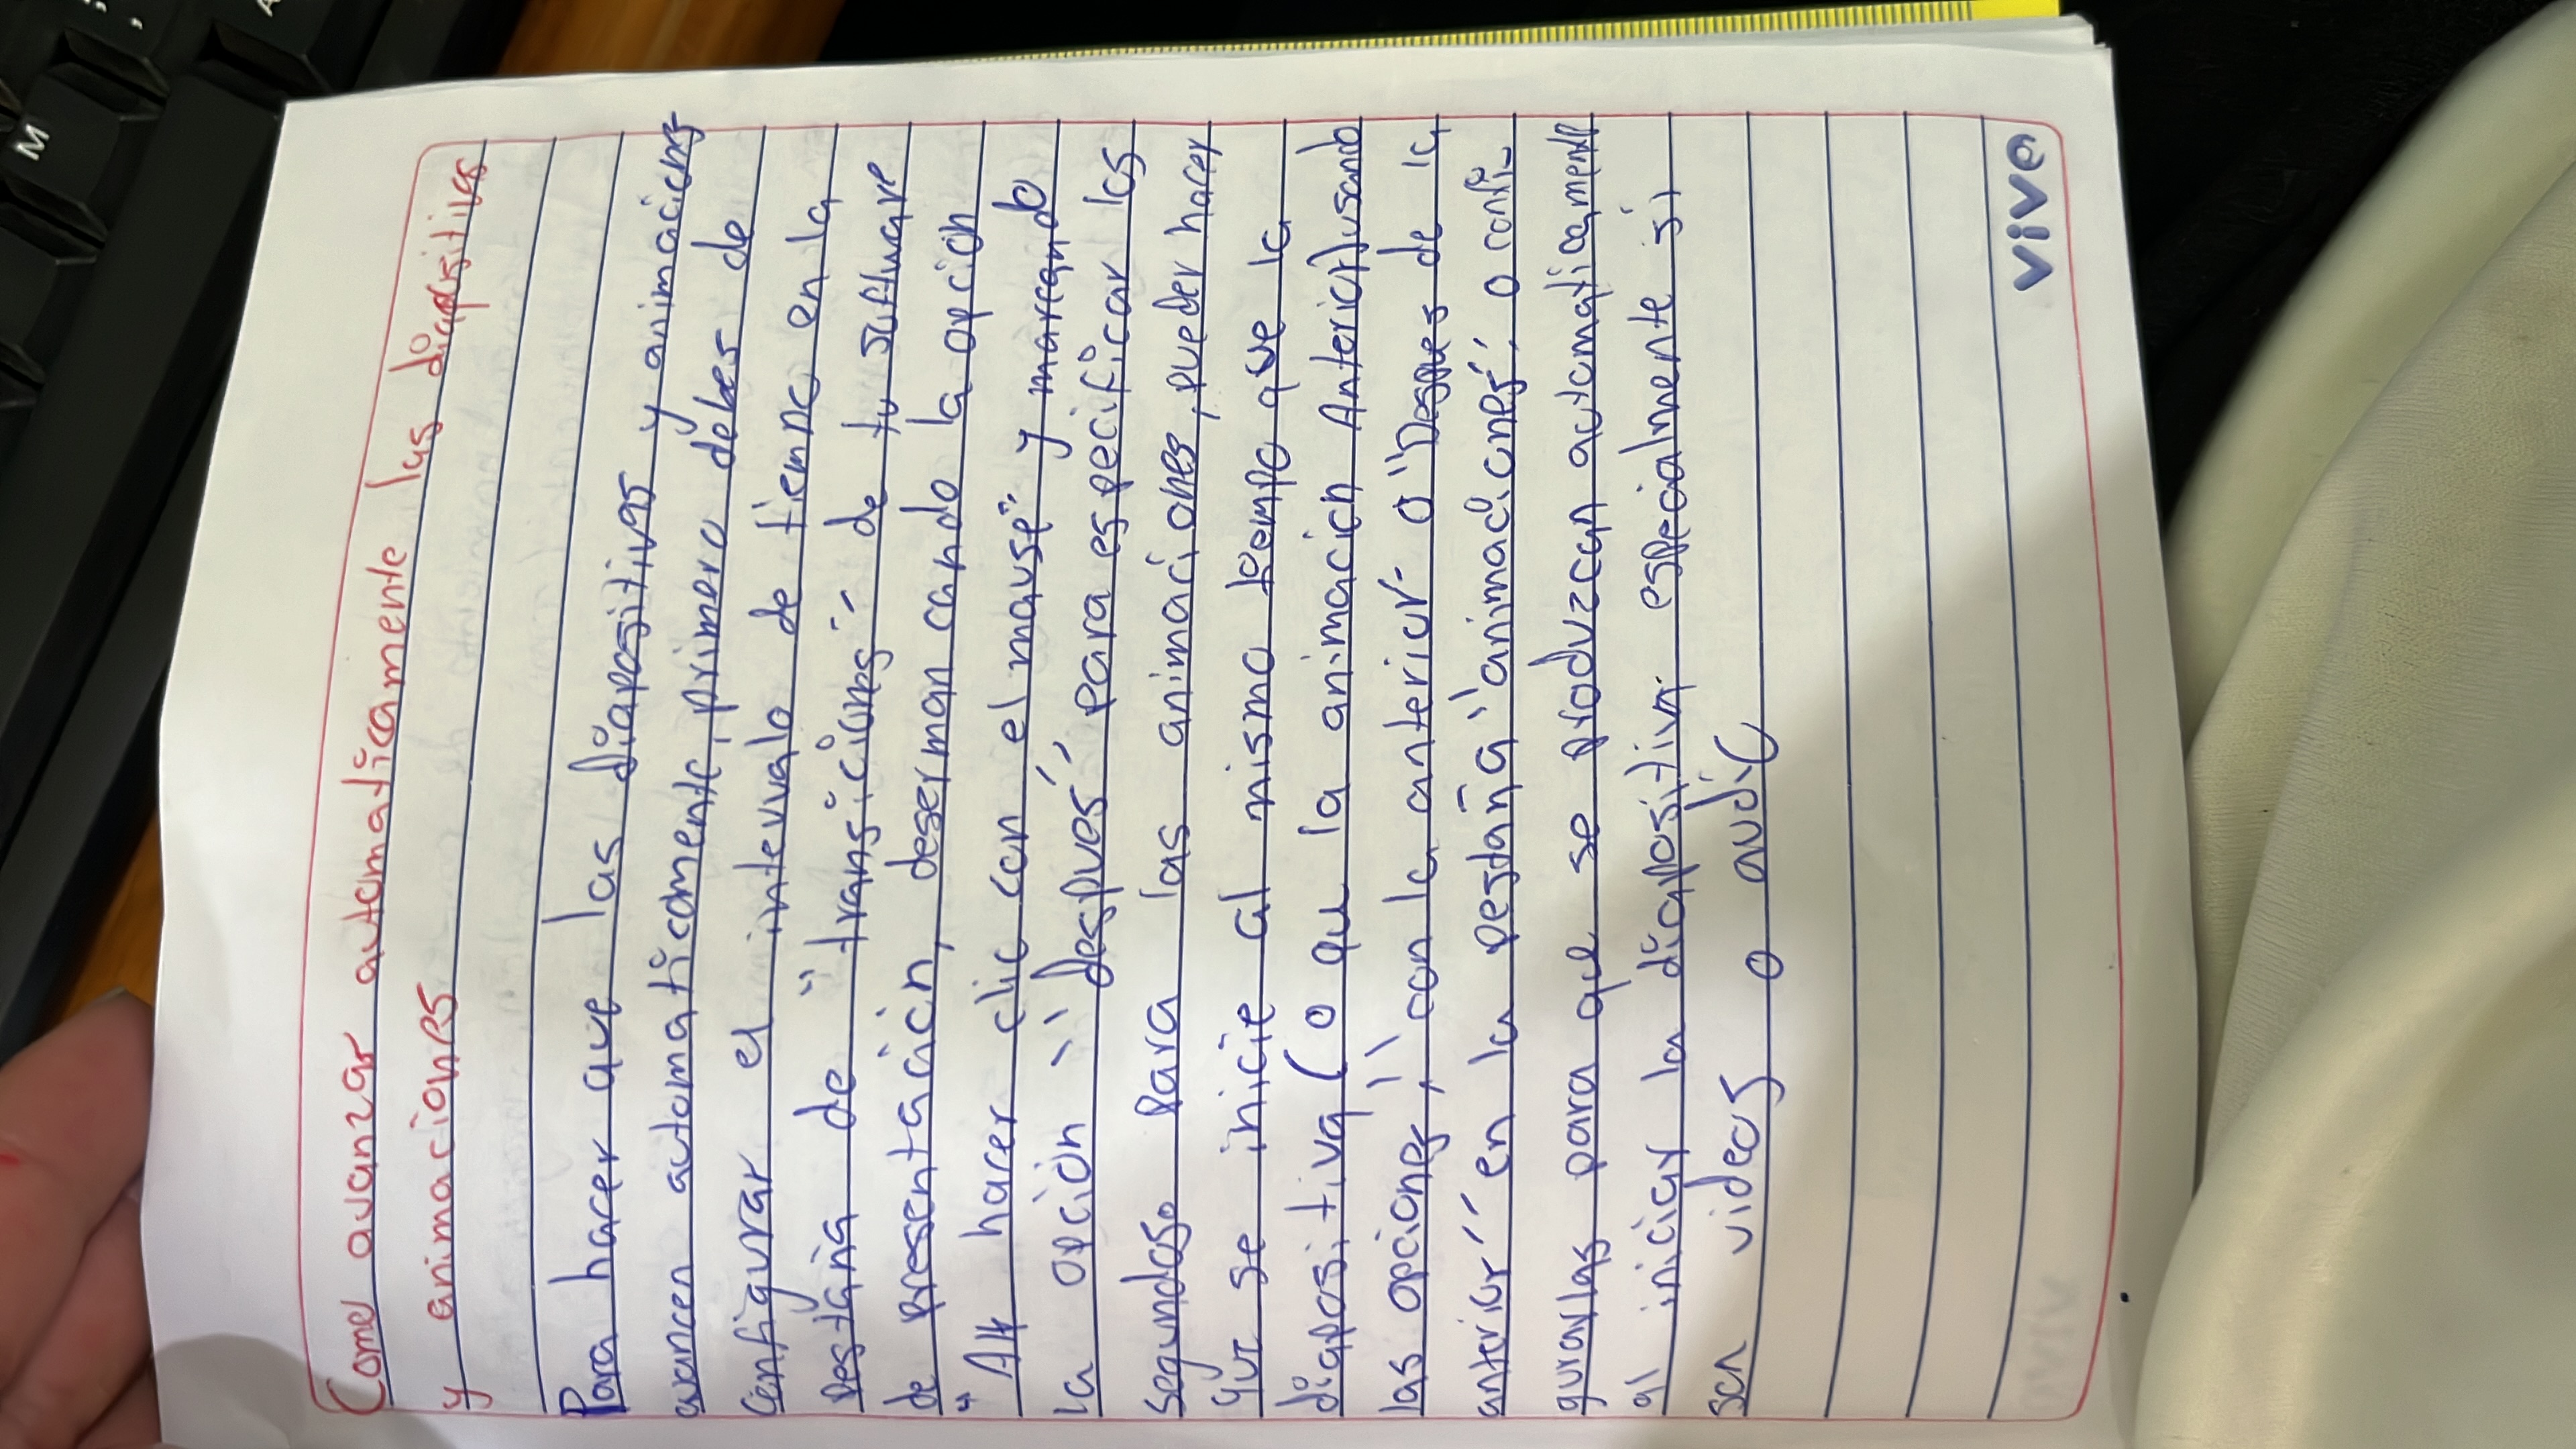 Como avanzar automaticamente las diapositivas
y animaciones
Para hacer que las diapositivas y animaciones
avancen automaticamente, primero debes de
configurar el intevualo de tiempo en la
Pestaña de "transiciones" de tu software
de presentación, desermancando la opcion
"Alt hacer clic con el mause" y marcando
la opcion "después" para especificar los
segundoso para las animaciones, pueder hacer
que se inicie al mismo tiempo que la
diapositiva (o que la animación Anterior) usando
las opciones, "con la anterior" o "Despues de la
anterior" en la pestaña "animaciones", o confi
gurarlas para que se produzcan automaticamente
al iniciar la diapositiva. especialmente si
son videos o audio
vive